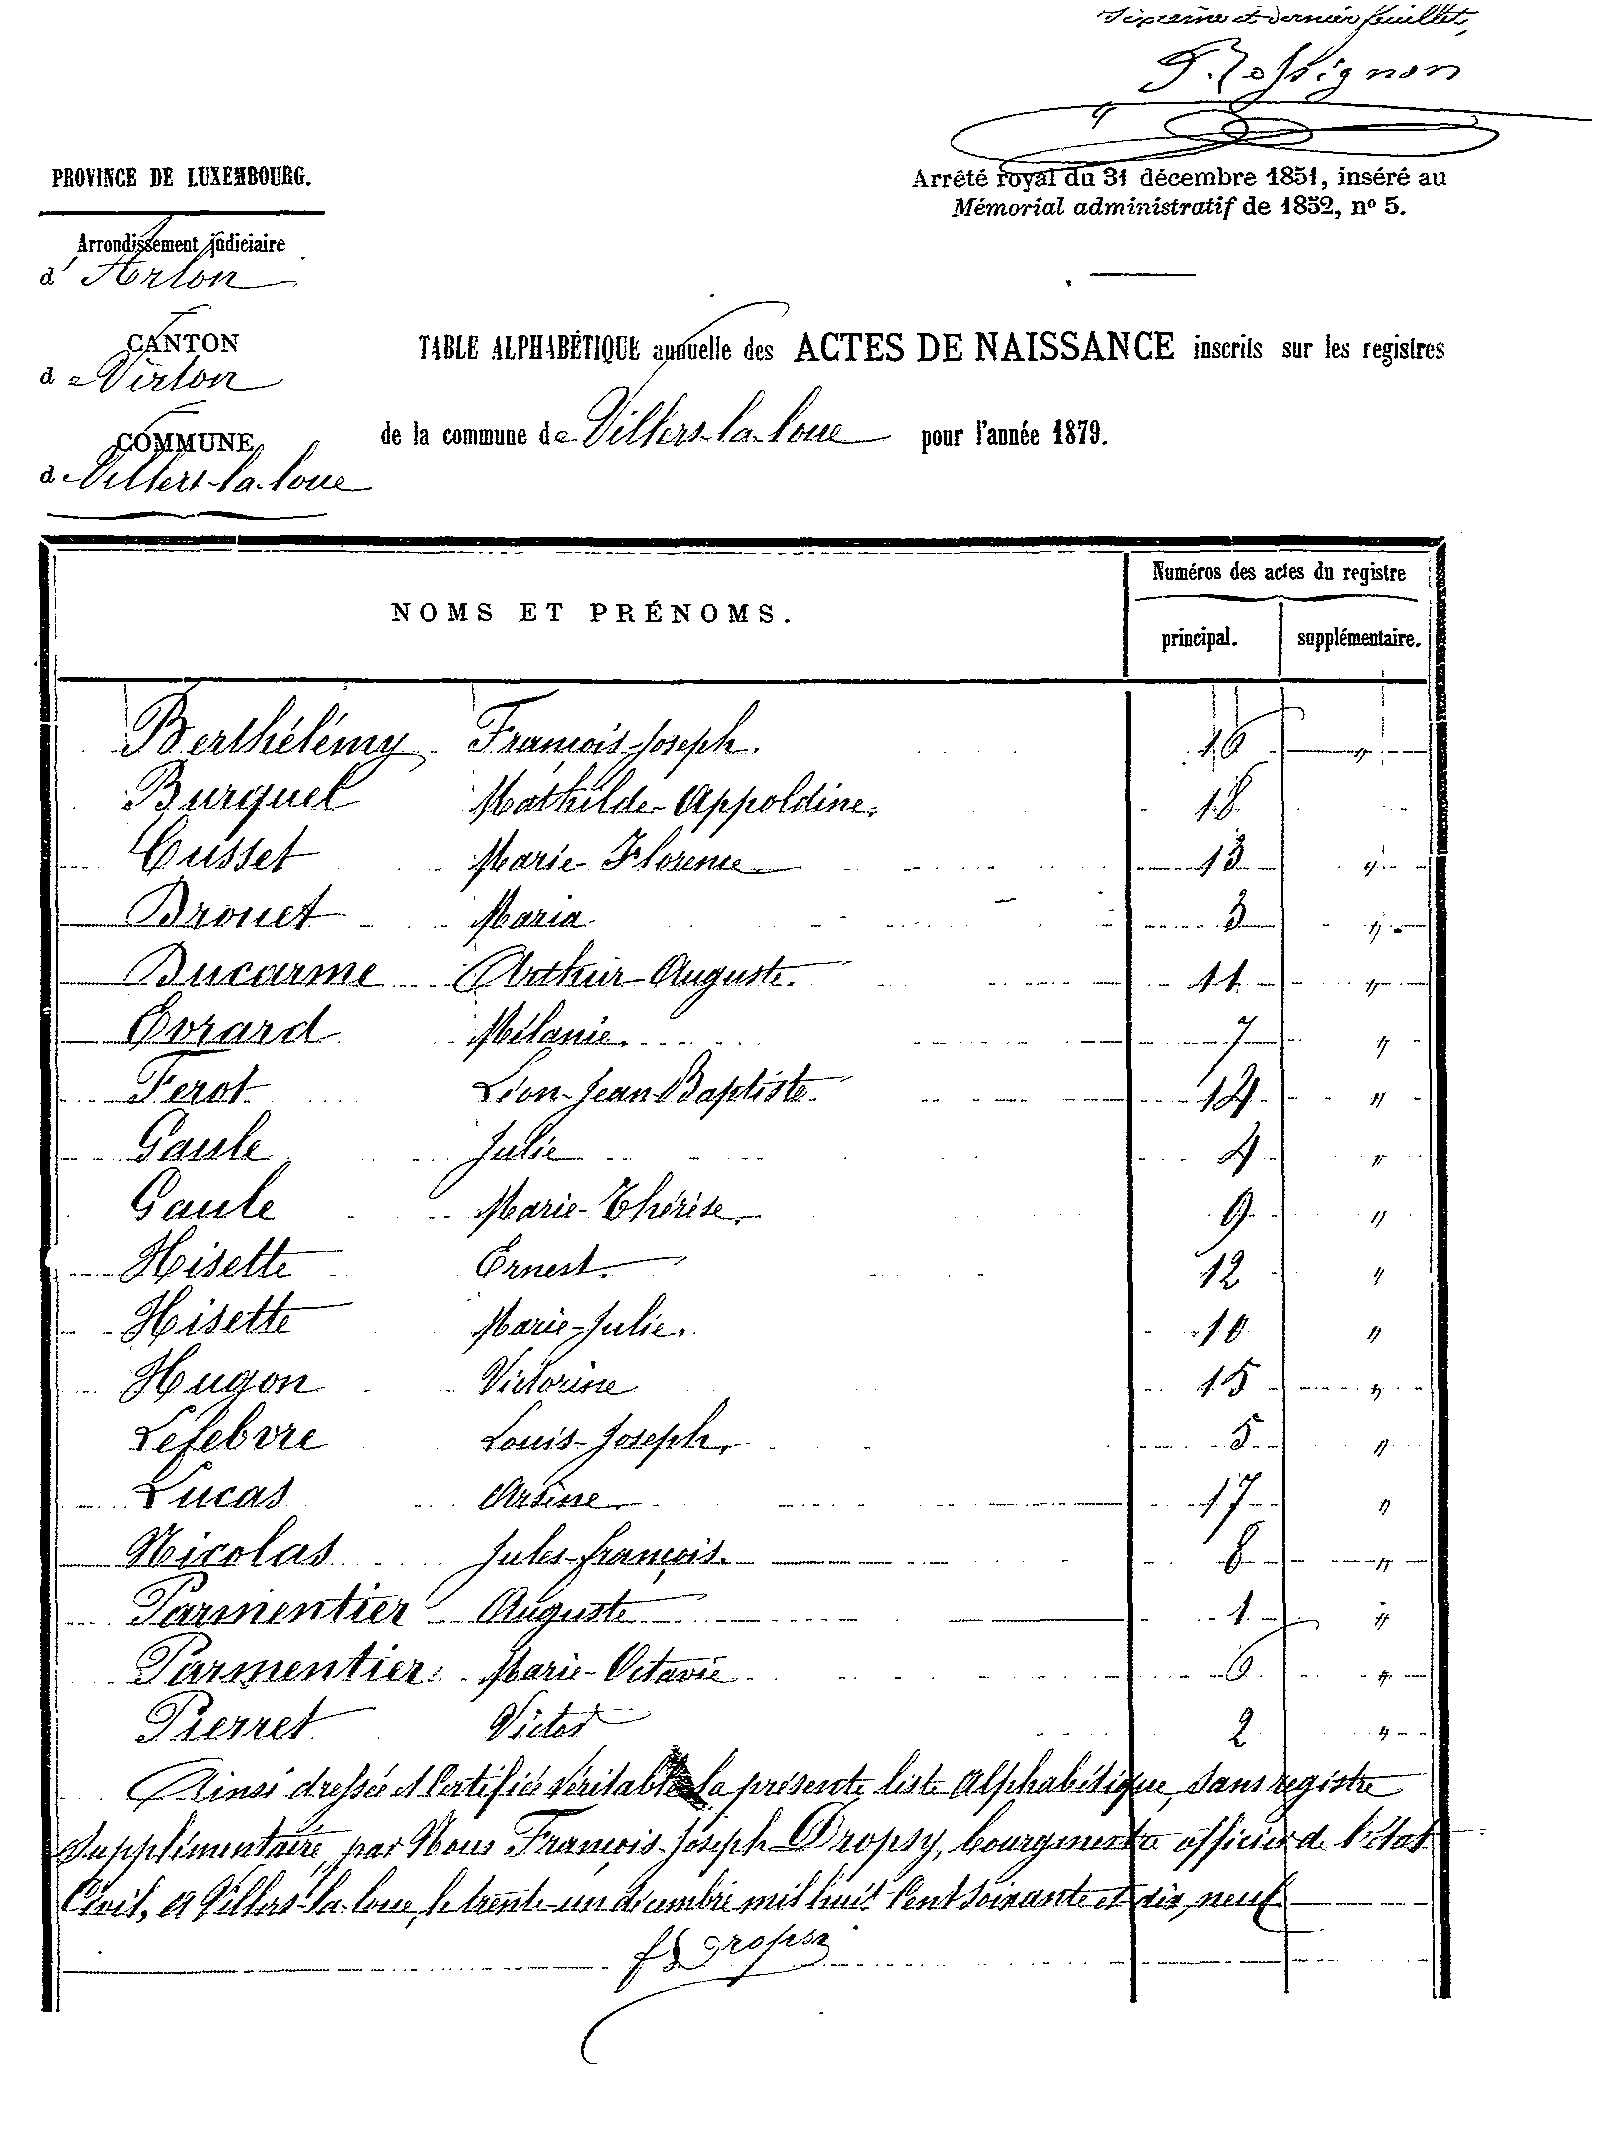 Sixième et dernier feuillet,
P. Rossignon
PROVINCE DE LUXEMBOURG.
Arrêté royal du 31 décembre 1851, inséré au
Mémorial administratif de 1852, nº 5.
Arrondissement judiciaire
d'Arlon
CANTON
de Virton
COMMUNE
de Villers-la-loue
TABLE ALPHABÉTIQUE annuelle des ACTES DE NAISSANCE inscrits sur les registres
de la commune de Villers-la-loue pour l'année 1879.
NOMS ET PRÉNOMS.
Numéros des actes du registre
principal. supplémentaire.
Berthélémy François-Joseph. 16 "
Burquel Mathilde-Appoldine. 18
Cusset Marie-Florence 13 "
Drouet Maria 3 "
Ducarme Arthur-Auguste. 11 "
Evrard Mélanie. 7 "
Ferot Léon-Jean-Baptiste. 14 "
Gaule Julie 4 "
Gaule Marie-Thérèse. 9 "
Hisette Ernest. 12 "
Hisette Marie-Julie. 10 "
Hugon Victorine 15 "
Lefebvre Louis-Joseph. 5 "
Lucas Arsène. 17 "
Nicolas Jules-françois. 8 "
Parmentier Auguste 1 "
Parmentier Marie-Octavie 6 "
Pierret Victor 2 "
Ainsi dressée et Certifiée véritable la présente liste Alphabétique, sans registre
Supplémentaire, par Nous François-Joseph Dropsy, bourgmestre officier de l'état
Civil, à Villers-la-loue, le trente-un décembre mil huit Cent soixante et dix, neuf
f J Dropsy